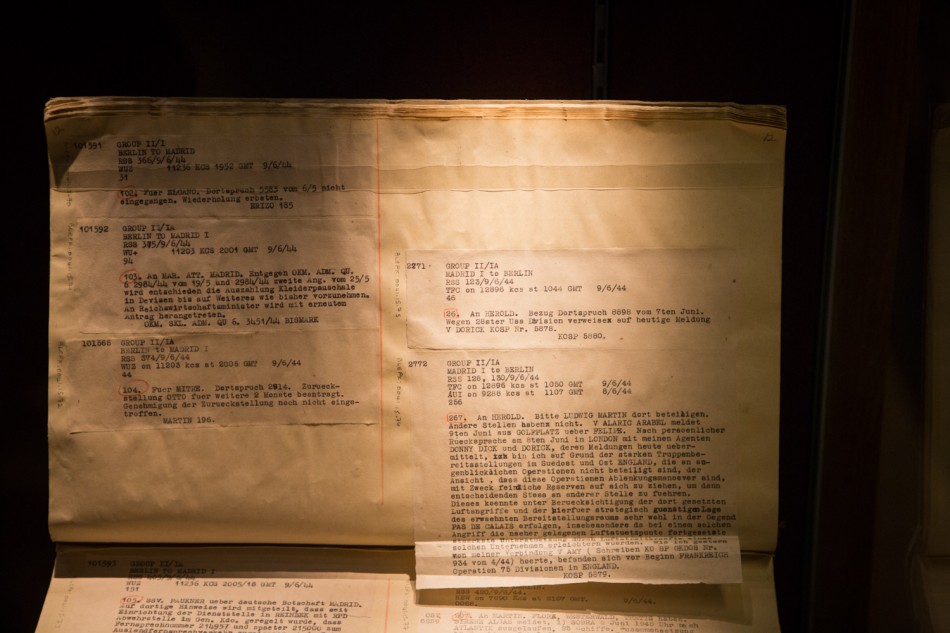 12
101591 GROUP II/I
BERLIN TO MADRID
RSS 366/9/6/44
WUZ 11236 KCS 1952 GMT 9/6/44
31
102. Fuer Dortspruch 3563 vom 6/5 nicht
eingegangen. Wiederholung erbeten.
185
101592 GROUP II/IA
BERLIN TO MADRID I
RSS 375/9/6/44
11203 KCS 2001 GMT 9/6/44
94
103. An MAR. ATT. MADRID. Entgegen OKM. ADM. QU.
6 2984/44 vom 19/5 und 2984/44 zweite Ang. vom 25/5
wird entschieden die Auszahlung Kleiderpauschale
in Devisen bis auf Weiteres wie bisher vorzunehmen.
An Reichswirtschaftsminister wird mit erneutem
Antrag herangetreten.
OKM. SKL. ADM. QU 6. 3451/44 BISMARK
GROUP II/IA
BERLIN TO MADRID I
RSS 374/9/6/44
WUZ on 11203 kcs at 2008 GMT 9/6/44
44
104. Fuer MITRE. Dortspruch 2914. Zurueck-
stellung OTTO fuer weitere 2 Monate beantragt.
Genehmigung der Zurueckstellung noch nicht einge-
troffen.
MARTIN 196.
GROUP II/IA
BERLIN TO MADRID I
WUZ 11236 KCS 2005/18 GMT 9/6/44
151
105. SSV. ueber deutsche Botschaft MADRID.
Auf dortige Hinweise wird mitgeteilt, dass seit
Einrichtung der Dienststelle in mit RFD
Abwehrstelle im Gen. Kdo. geregelt wurde, dass
Fernsprechnummer 214957 und spaeter 215000 zum
12
2771 GROUP II/IA
MADRID I to BERLIN
RSS 123/9/6/44
TFC on 12896 kcs at 1044 GMT 9/6/44
46
An HEROLD. Bezug Dortspruch 8898 vom 7ten Juni.
Wegen 28ster Division verweise auf heutige Meldung
V DORICK KOSP Nr. 5878.
KOSP 5880.
2772 GROUP II/IA
MADRID I to BERLIN
RSS 128, 130/9/6/44
TFC on 12896 kcs at 1050 GMT 9/6/44
on 9288 kcs at 1107 GMT 8/6/44
256
267. An HEROLD. Bitte LUDWIG MARTIN dort beteiligen.
Andere Stellen haben nicht. V ALARIC ARABEL meldet
9ten Juni aus GOLFPLATZ ueber FELIPE. Nach persoenlicher
Ruecksprache am 8ten Juni in LONDON mit meinen Agenten
DONNY DICK und DORICK, deren Meldungen heute ueber-
mittelt, bin ich auf Grund der starken Truppenbe-
reitsstellungen im Suedost und Ost ENGLAND, die an an-
genblicklichen Operationen nicht beteiligt sind, der
Ansicht , dass diese Operationen Ablenkungsmanoever sind,
mit Zweck feindliche Reserven auf sich zu ziehen, um dann
entscheidenden Stoss an anderer Stelle zu fuehren.
Dieses koennte unter Beruecksichtigung der dort gesetzten
Luftangriffe und der hierfuer strategisch guenstigen Lage
des erwaehnten Bereitstellungsraums sehr wohl in der Gegend
PAS DE CALAIS erfolgen, insbesondere da bei einem solchen
Angriff die naeher gelegenen Luftstuetzpunkte fortgesetzte
solchen Unternehmen erleichtern wuerden.
man meiner Verbindung V AMY ( Schreiben KO SP GKDOS Nr.
934 von 4/44) hoerte, befanden sich vor Beginn FRANKREICH
Operation 75 Divisionen in ENGLAND.
KOSP 5879.